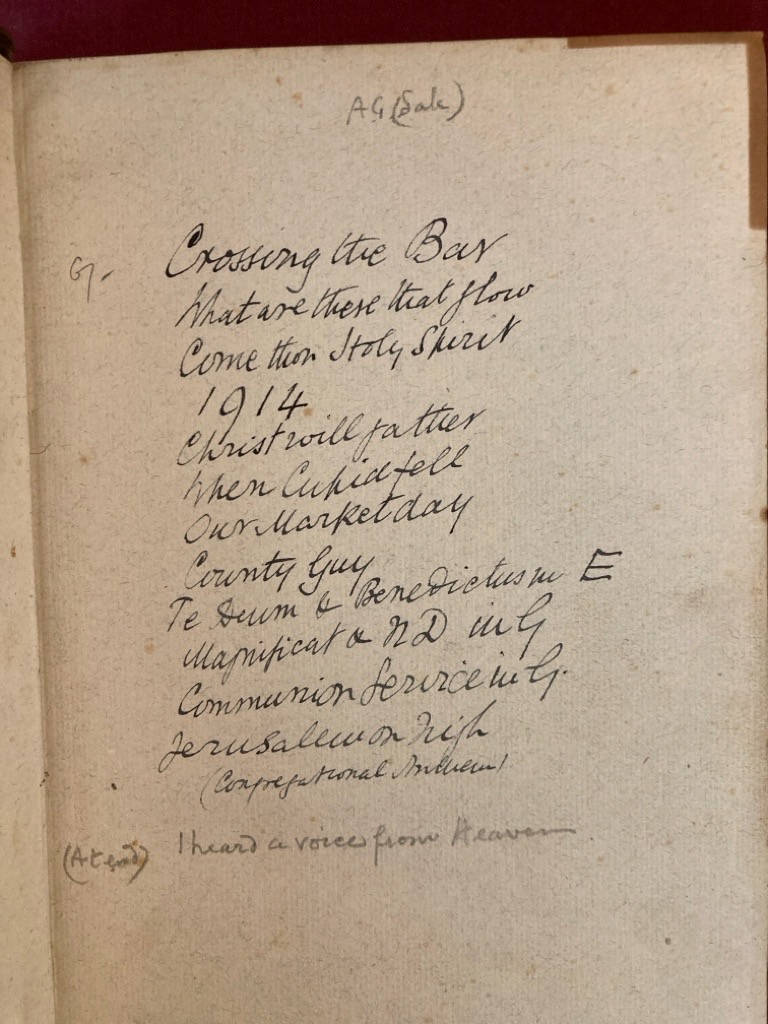 AG (Sale)
Crossing the Bar
What are these that glow
Come thou Holy Spirit
1914
Christ will gather
When Cupid fell
Our Market day
County Guy
Te Deum & Benedictus in E
Magnificat & ND in G
Communion Service in G.
Jerusalem on high
(Congregational Anthem)
(At end) I heard a voice from Heaven